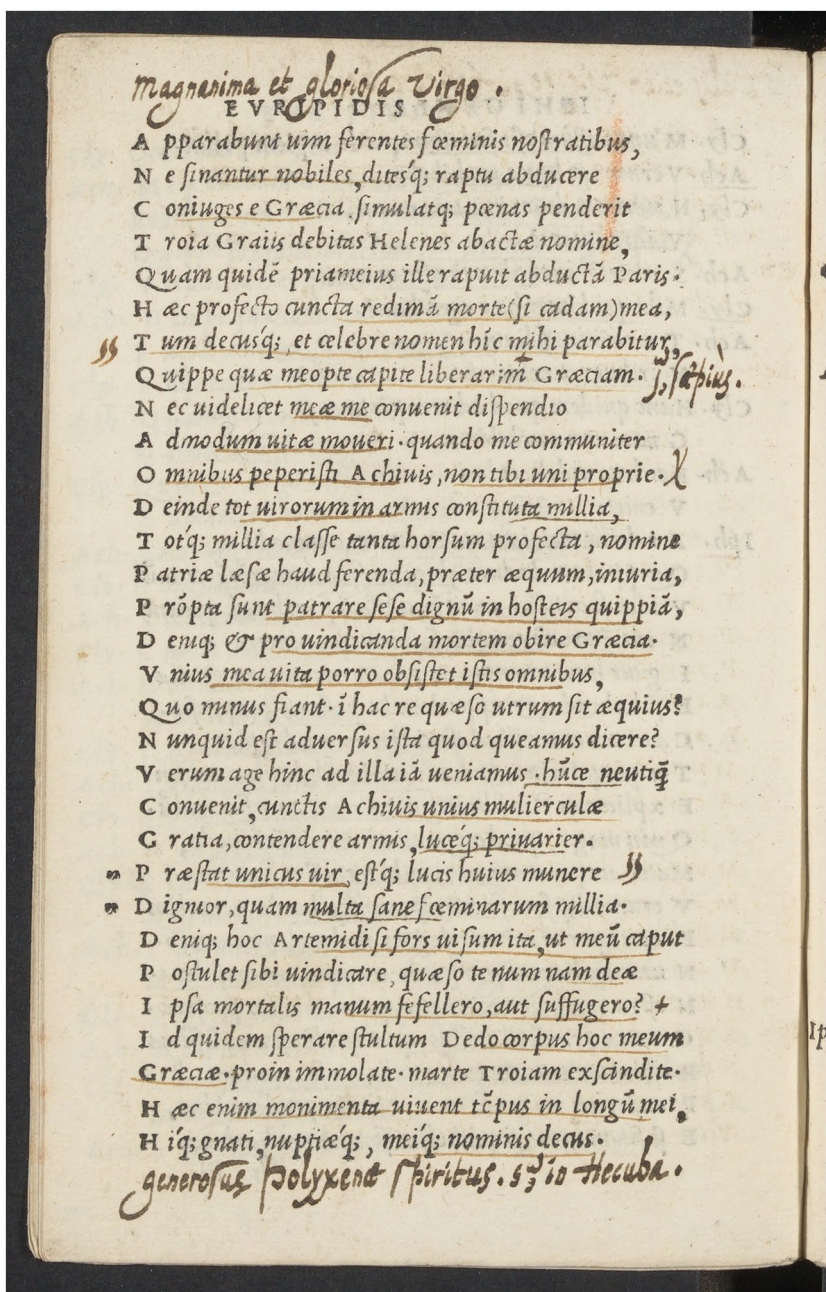 Magnanima et gloriosa Virgo.
EVRIPIDIS
Apparabunt uim ferentes fœminis nostratibus,
Ne sinantur nobiles, ditesq́; raptu abducere
Coniuges e Græcia, simulatq; pœnas penderit
Troia Graiis debitas Helenes abactæ nomine,
Quam quidē priameius ille rapuit abductā Paris.
Hæc profecto cuncta redimā morte(si cadam)mea,
Tum decusq́;, et celebre nomen hîc mihi parabitur,
Quippe quæ meopte capite liberarim̄ Græciam.
Nec uidelicet meæ me conuenit dispendio
Admodum uitæ moueri. quando me communiter
Omnibus peperisti Achiuis, non tibi uni proprie.
Deinde tot uirorum in armis constituta millia,
Totq́; millia classe tanta horsum profecta, nomine
Patriæ læsæ haud ferenda, præter æquum, iniuria,
Prōpta sunt patrare sese dignū in hosteis quippiā,
Deniq; & pro uindicanda mortem obire Græcia.
Vnius mea uita porro obsistet istis omnibus,
Quo minus fiant. ī hac re quæso utrum sit æquius?
Nunquid est aduersus ista quod queamus dicere?
Verum age hinc ad illa iā ueniamus. hūce neutiq̄
Conuenit, cunctis Achiuis unius mulierculæ
Gratia, contendere armis, luceq́; priuarier.
Præstat unicus uir, estq́; lucis huius munere
Dignior, quam multa sane fœminarum millia.
Deniq; hoc Artemidi si fors uisum ita, ut meū caput
Postulet sibi uindicare, quæso te num nam deæ
Ipsa mortalis manum fefellero, aut suffugero? +
Id quidem sperare stultum Dedo corpus hoc meum
Græciæ. proin immolate. marte Troiam exscindite.
Hæc enim monimenta uiuent tēpus in longū mei,
Hiq́; gnati, nuptiæq́;, meiq́; nominis decus.
generosus Polyxenæ spiritus. in Hecuba.